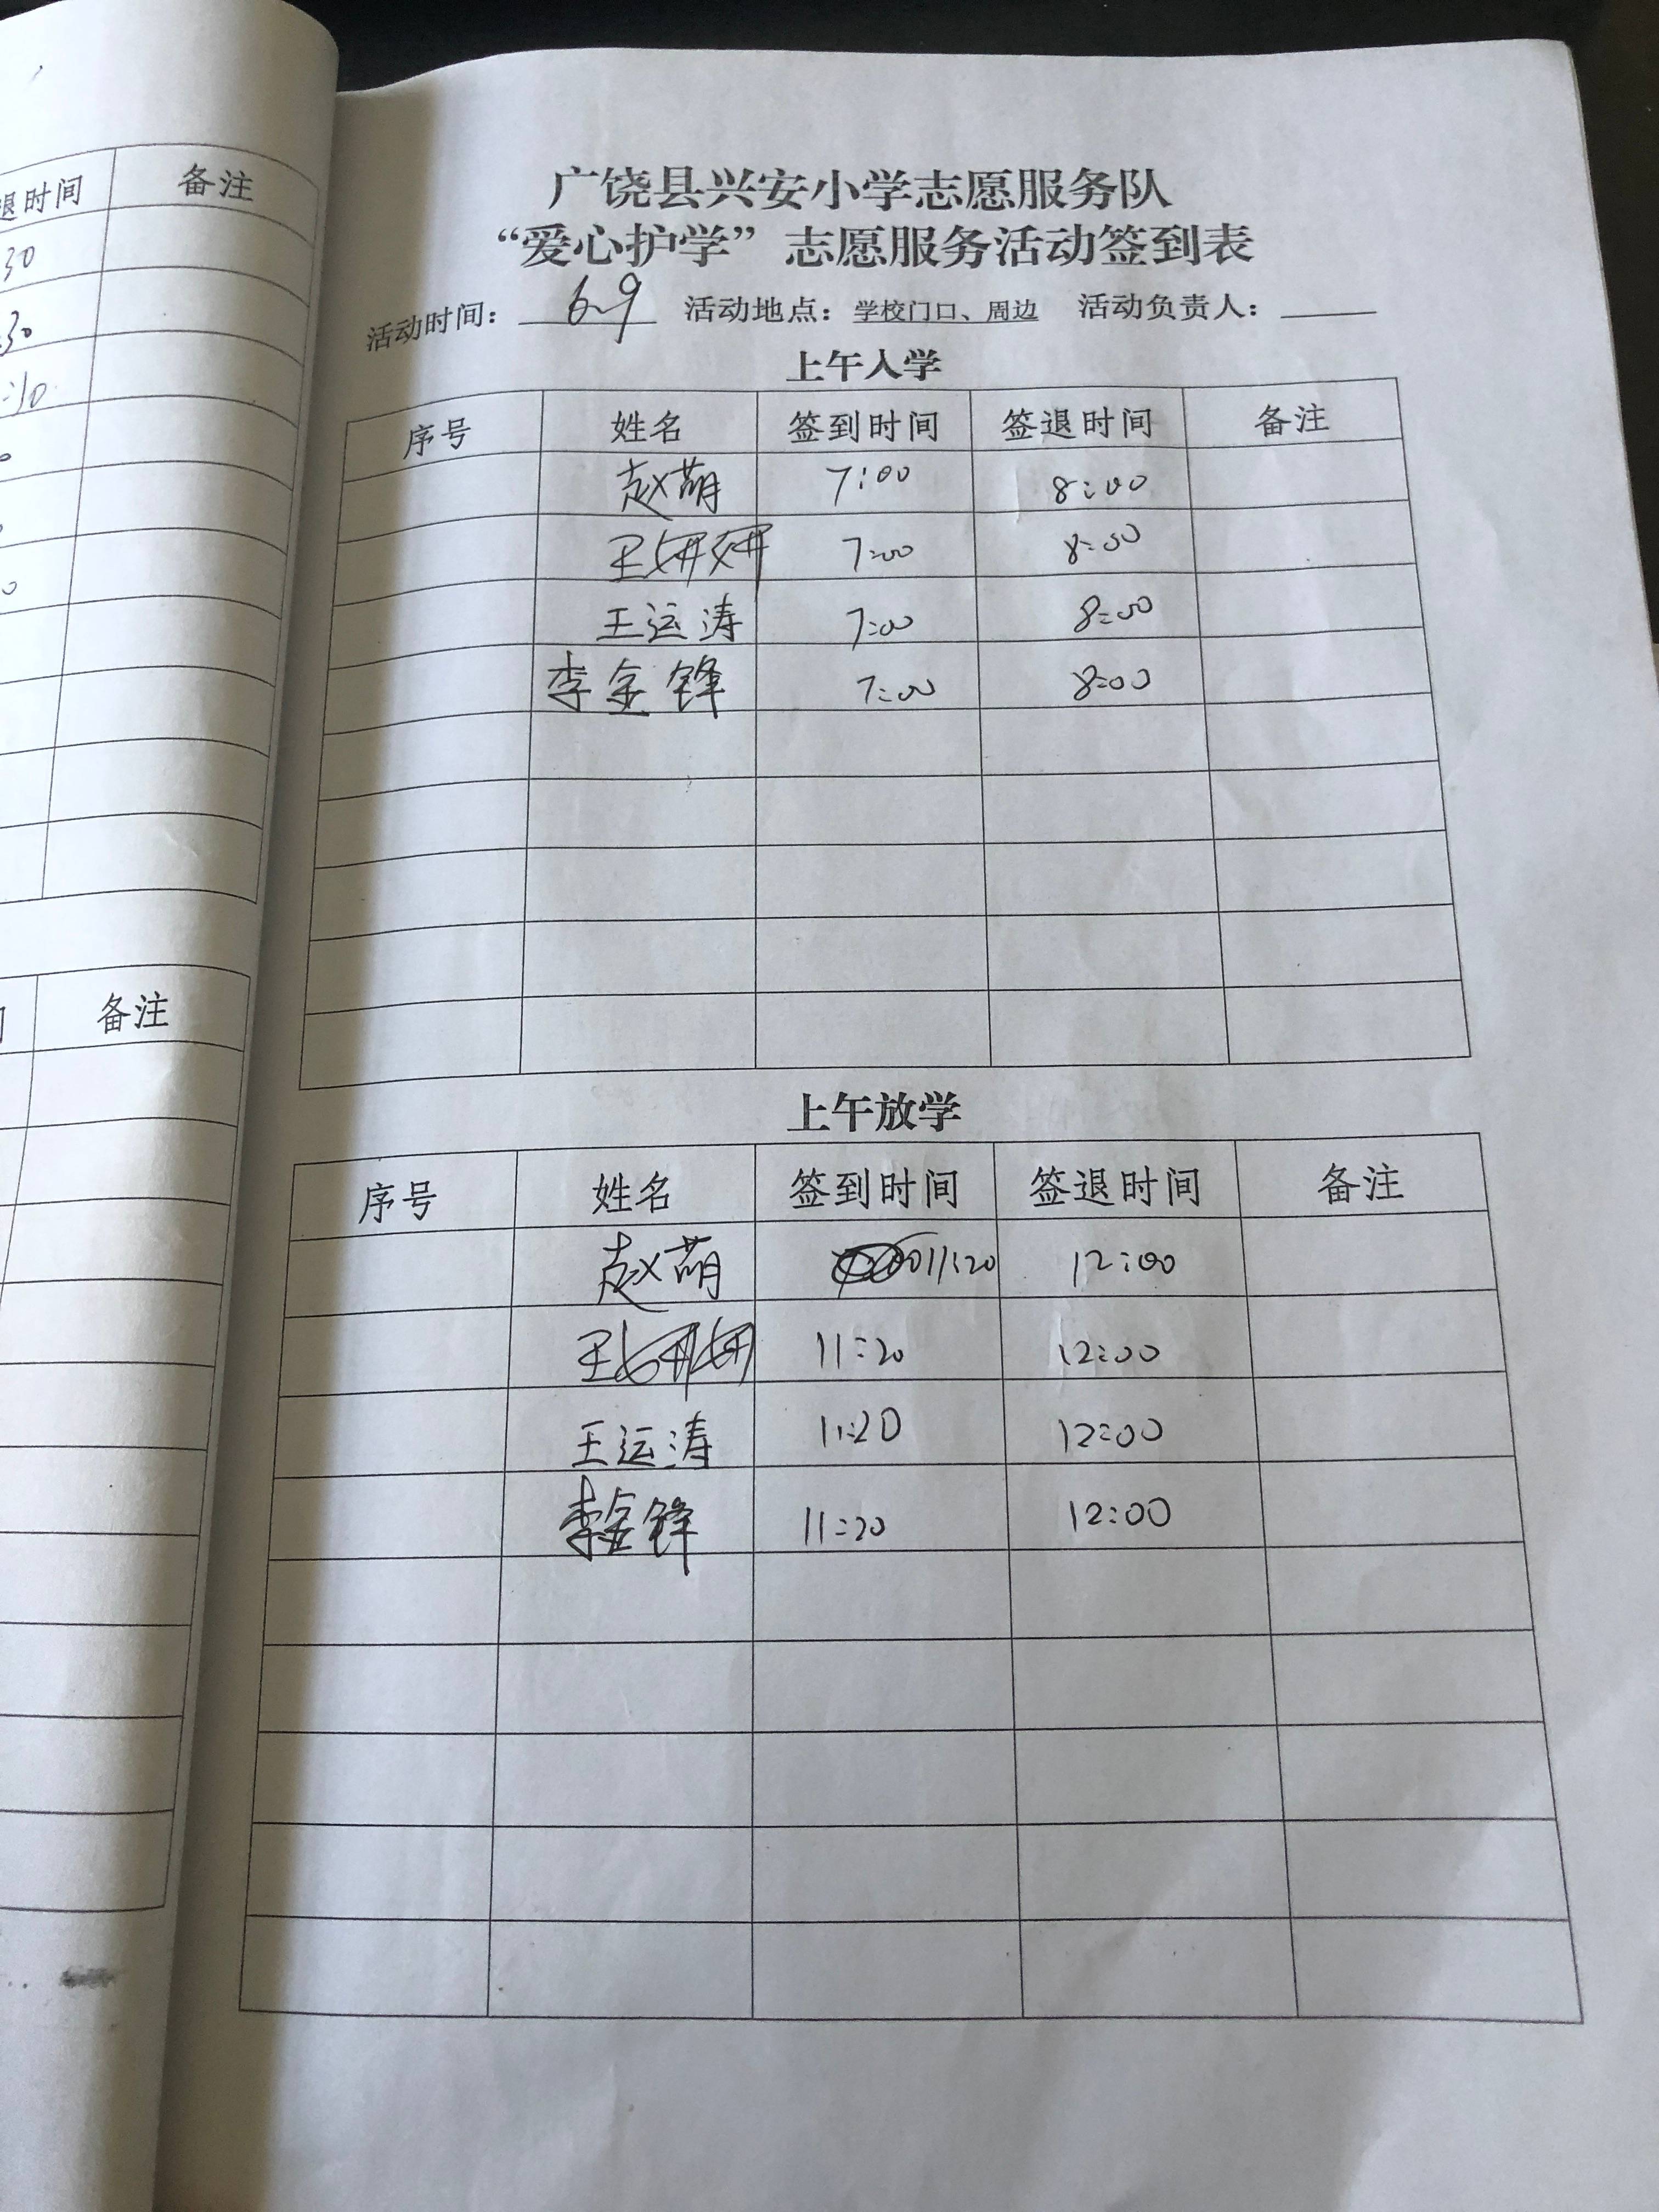 退时间 备注
30
30
:10
备注
广饶县兴安小学志愿服务队
“爱心护学”志愿服务活动签到表
活动时间： 6.9 活动地点：学校门口、周边 活动负责人：
上午入学
序号 姓名 签到时间 签退时间 备注
赵萌 7:00 8:00
王妍妍 7:00 8:00
王运涛 7:00 8:00
李金锋 7:00 8:00
上午放学
序号 姓名 签到时间 签退时间 备注
赵萌 11:20 12:00
王妍妍 11:20 12:00
王运涛 11:20 12:00
李金锋 11:20 12:00